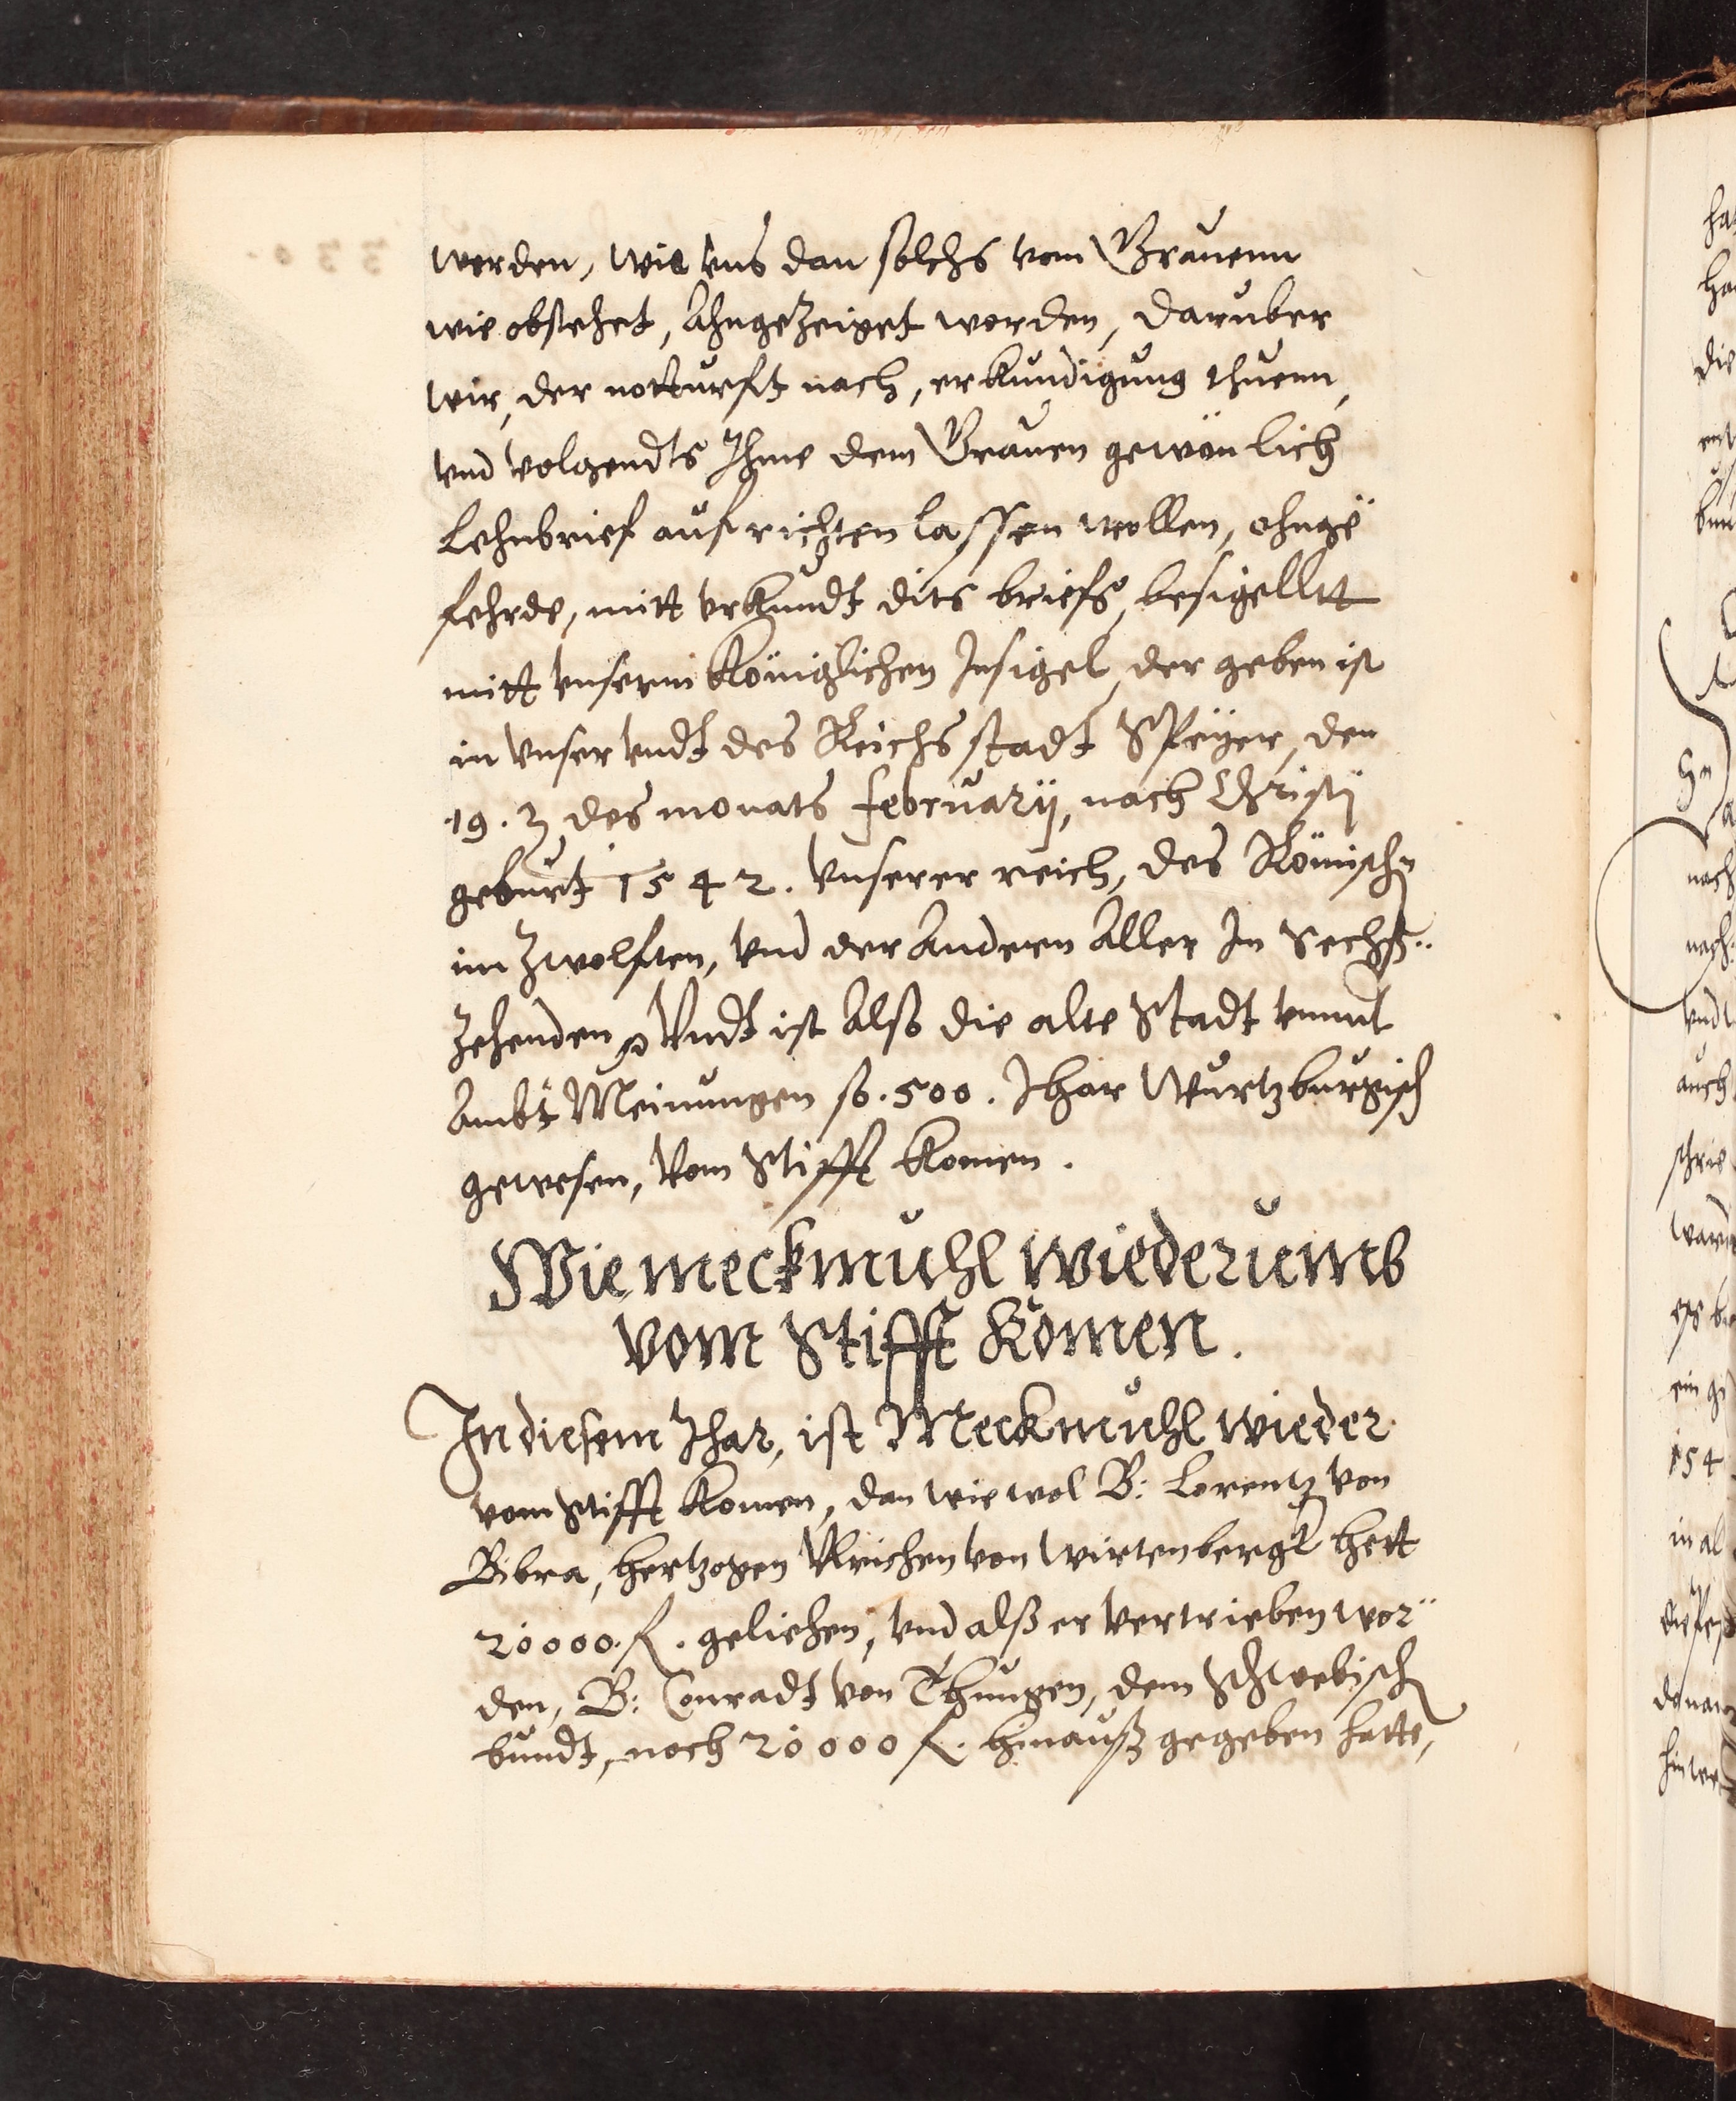 werden, wie vns dan solchs vom Grauenn
wie obstehet, Ahngezeiget worden, daruber
wir, der notturft nach, erkundigung thuenn,
vnd volgendts Ihme dem Grauen gewönlich
Lehnbrief aufrichten lassen wollen, ohnge
fehrde, mitt vrkundt dits briefs, besigelltt
mitt vnserm königlichen Insigel, der geben ist
in vnser vndt des Reichs stadt Speyer, den
19. des monats february, nach Christi
geburt 1542. vnserer reich, des Römisch
im zwolften, vnd der Andern Aller Im Sechß
zehenden Vndt ist Alß die alte Stadt vnnd
Ambt Meinungen so. 500. Ihar Wurtzburgisch
gewesen, vom Stifft komen.
Wie meckmuhl wiederumb
vom Stifft komen.
In diesem Ihar, ist Meckmuhl wieder
vom Stifft komen, dan wie wol B: Lorentz von
Bibra, hertzogen Vlrichen von Wirtenbergk hett
20000. fl. geliehen, vnd alß er vertrieben wor
den, B: Conradt von Thungen, dem Schwebisch
bundt, noch 20000 fl. hinauß gegeben hatte,